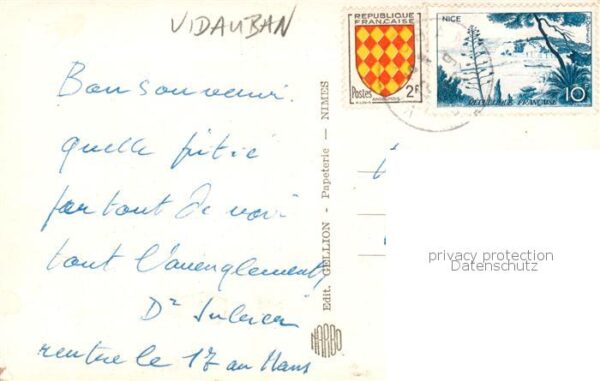 VIDAUBAN
Bon souvenir.
quelle pitié
partout de voir
tant l'aveuglement,
Dr
rentre le 17 au Mans
Edit. GELLION - Papeterie — NIMES
MARBO
REPUBLIQUE
FRANÇAISE
Postes 2F
ANGOUMOIS
NICE
REPUBLIQUE FRANÇAISE
10F
privacy protection
Datenschutz